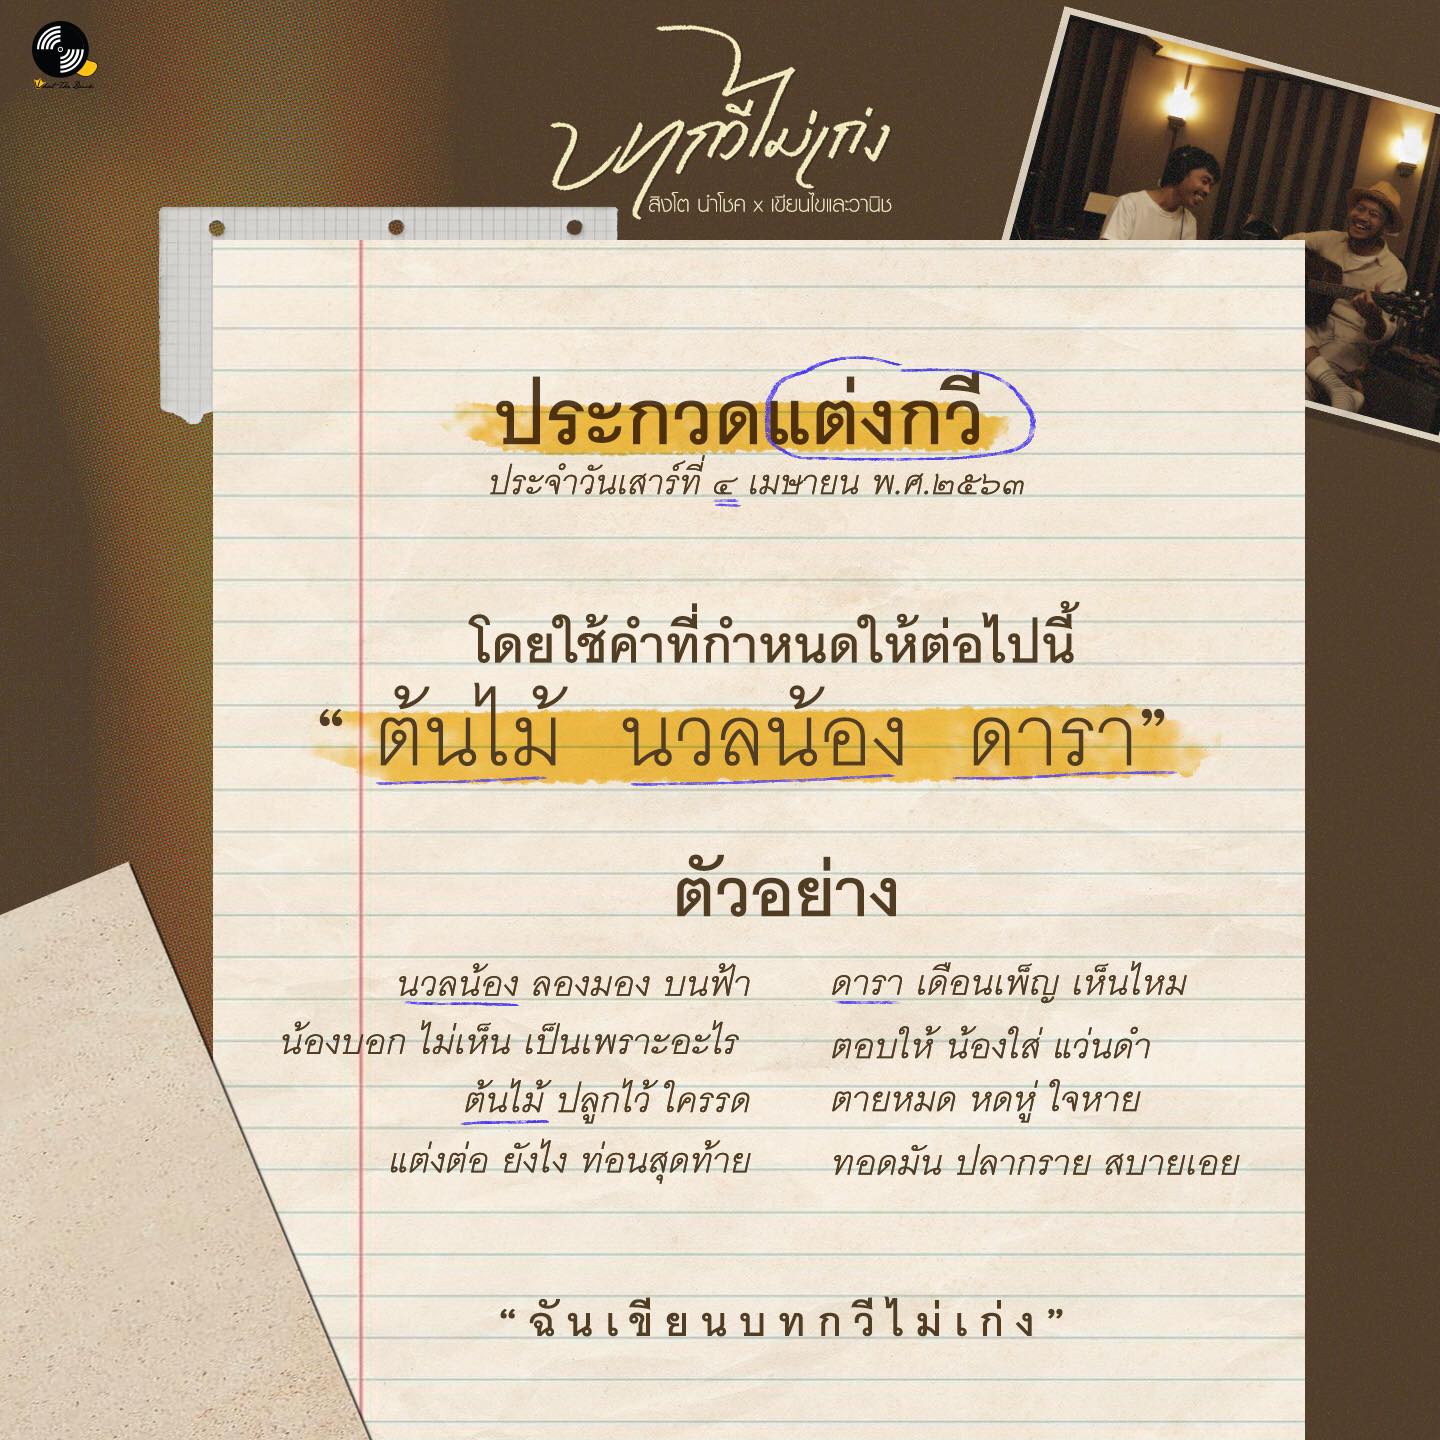 What The Duck
บทกวีไม่เก่ง
สิงโต นำโชค x เขียนไขและวานิช
ประกวดแต่งกวี
ประจำวันเสาร์ที่ ๔ เมษายน พ.ศ.๒๕๖๓
โดยใช้คำที่กำหนดให้ต่อไปนี้
“ ต้นไม้ นวลน้อง ดารา”
ตัวอย่าง
นวลน้อง ลองมอง บนฟ้า ดารา เดือนเพ็ญ เห็นไหม
น้องบอก ไม่เห็น เป็นเพราะอะไร ตอบให้ น้องใส่ แว่นดำ
ต้นไม้ ปลูกไว้ ใครรด ตายหมด หดหู่ ใจหาย
แต่งต่อ ยังไง ท่อนสุดท้าย ทอดมัน ปลากราย สบายเอย
“ฉันเขียนบทกวีไม่เก่ง”